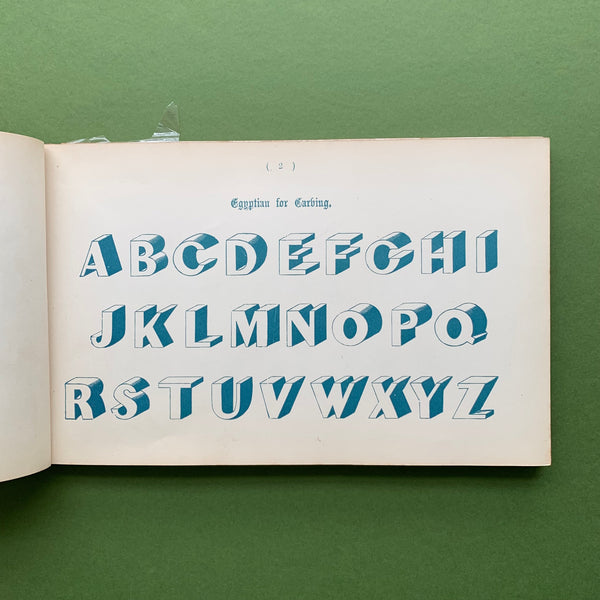 ( 2 )
Egyptian for Carving.
ABCDEFGHI
JKLMNOPQ
RSTUVWXYZ